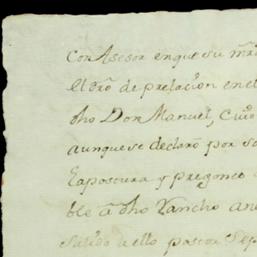 Con Asesor en que su mrd
el dro de prelacion en el
dho Don Manuel, Cuio
aunque se declaró por
la postura y pregones
ble â dho Rancho
salido a ello pastor